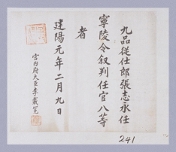 九品從仕郎張志永任
寧陵令叙判任官八等
者
建陽元年二月九日
宮內府大臣李載冕
241